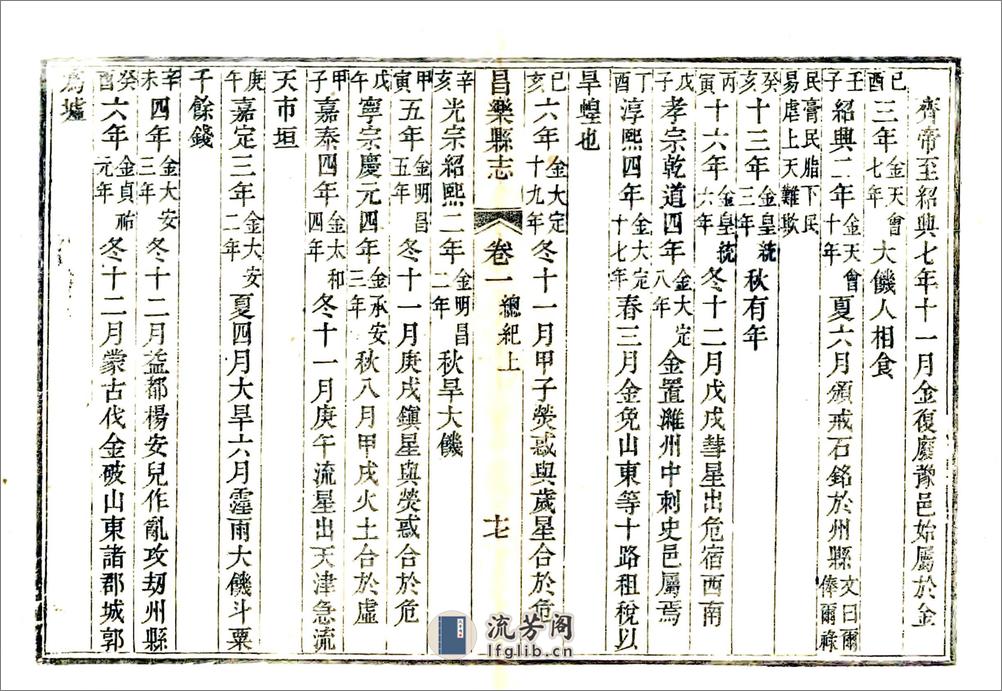 齊帝至紹興七年十一月金復廢豫邑始屬於金
己酉三年金天會七年大饑人相食
壬子紹興二年金天會十年夏六月頒戒石銘於州縣文曰爾俸爾祿
民膏民脂下民易虐上天難欺
癸亥十三年金皇統三年秋有年
丙寅十六年金皇統六年冬十二月戊戌彗星出危宿西南
戊子孝宗乾道四年金大定八年金置濰州中刺史邑屬焉
丁酉淳熙四年金大定十七年春三月金免山東等十路租稅以
旱蝗也
己亥六年金大定十九年冬十一月甲子熒惑與歲星合於危
昌樂縣志 卷一 總紀上 十七
辛亥光宗紹熙二年金明昌二年秋旱大饑
甲寅五年金明昌五年冬十一月庚戌鎮星與熒惑合於危
戊午寧宗慶元四年金承安三年秋八月甲戌火土合於虛
甲子嘉泰四年金太和四年冬十一月庚午流星出天津急流
天市垣
庚午嘉定三年金大安二年夏四月大旱六月霪雨大饑斗粟
千餘錢
辛未四年金大安三年冬十二月益都楊安兒作亂攻刼州縣
癸酉六年金貞祐元年冬十二月蒙古伐金破山東諸郡城郭
為墟
流芳阁
lfglib.cn